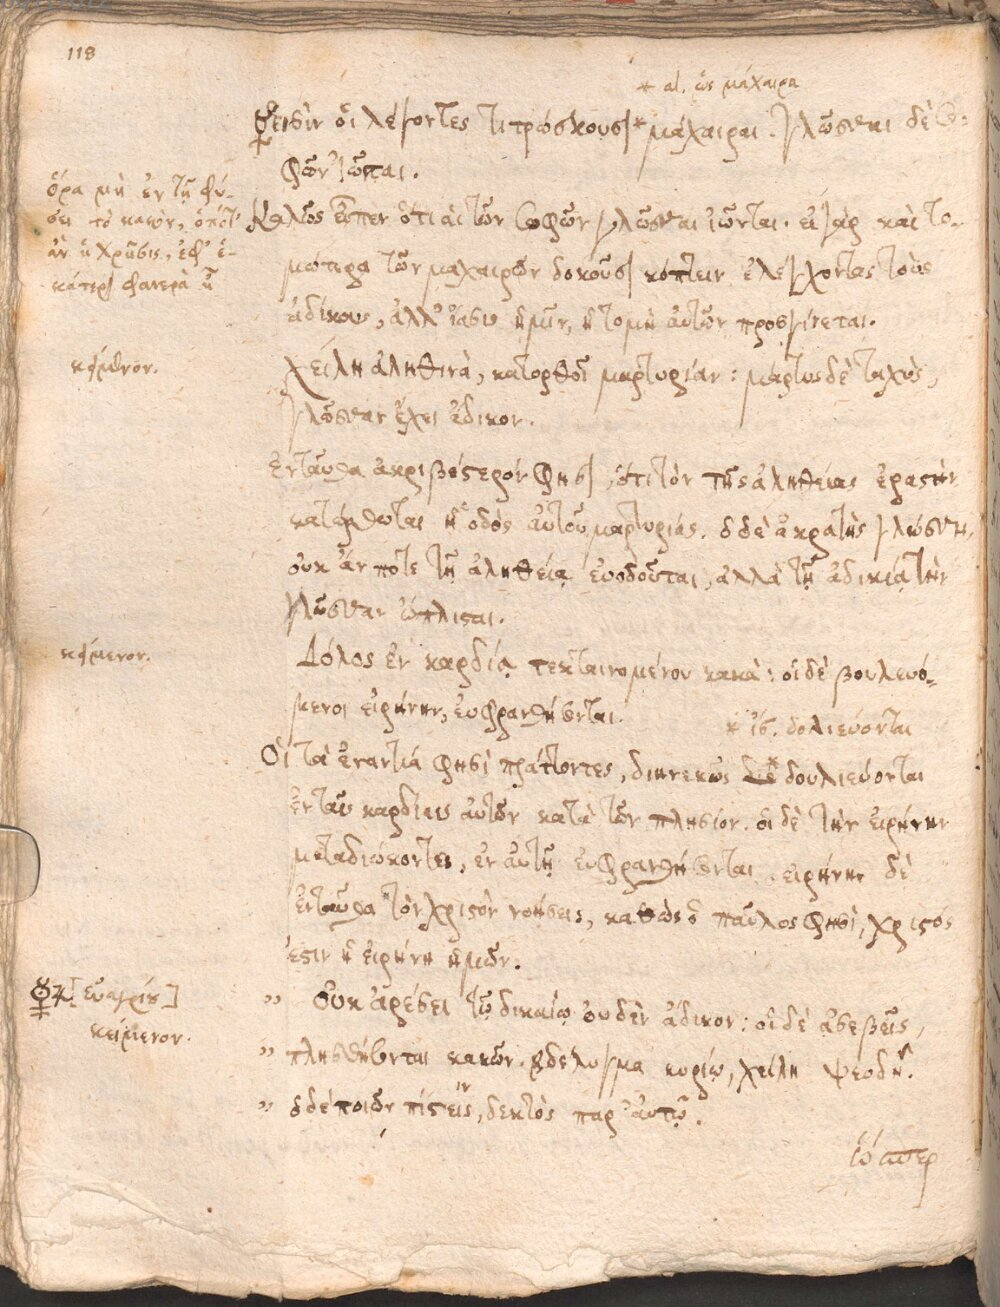 118
* αἱ. ὡς μάχαιρα
Εἰσὶν οἳ λέγοντες τιτρώσκουσι * μάχαιραι. γλῶσσαι δὲ σο-
φῶν ἰῶνται.
ὅρα μὴ ἐν τῇ φύ-
σει τὸ κακὸν, ὁπότ'
ἂν ἡ χρῆσις, ἐφ' ἑ-
κάτερα φανερὰ ᾖ
Καλῶς εἶπεν ὅτι αἱ τῶν σοφῶν γλῶσσαι ἰῶνται. εἰ γὰρ καὶ το-
μώτερα τῶν μαχαιρῶν δοκοῦσι κόπτειν ἐλέγχοντας τοὺς
ἀδίκους, ἀλλ' ἴασις ἡμῖν, ἡ τομὴ αὐτῶν προσγίνεται.
κείμενον.
χείλη ἀληθινὰ, κατορθοῖ μαρτυρίαν: μάρτυς δὲ ταχὺς,
γλῶσσαν ἔχει ἄδικον.
ἐνταῦθα ἀκριβέστερόν φησι, ὅτι τὸν τῆς ἀληθείας ἐραστὴν
κατόρθωται ἡ ὁδὸς αὐτοῦ μαρτυρίας. ὁ δὲ ἀκρατὴς γλώσσῃ,
οὐκ ἄν ποτε τῇ ἀληθείᾳ εὐοδοῦται, ἀλλὰ τῇ ἀδικίᾳ τὴν
γλῶσσαν ὥπλισται.
κείμενον.
Δόλος ἐν καρδίᾳ τεκταινομένου κακὰ: οἱ δὲ βουλευό-
μενοι εἰρήνην, εὐφρανθήσονται.
* ἴσ. δολιεύονται
Οἱ τὰ ἐναντία φησὶ πράττοντες, διηνεκῶς δὲ * δουλιεύονται
ἐν ταῖς καρδίαις αὐτῶν κατὰ τῶν πλησίον. οἱ δὲ τὴν εἰρήνην
μεταδιώκοντες, ἐν αὐτῇ εὐφρανθήσονται. εἰρήνην δὲ
ἐνταῦθα τὸν χριστὸν νοήσεις, καθὼς ὁ παῦλος φησὶ, χριστός
ἐστιν ἡ εἰρήνη ἡμῶν.
[εὐαγρίου]
κείμενον.
" Οὐκ ἀρέσει τῷ δικαίῳ οὐδὲν ἄδικον: οἱ δὲ ἀσεβεῖς,
" πλησθήσονται κακῶν. βδέλυγμα κυρίῳ, χείλη ψευδῆ.
" ὁ δὲ ποιῶν πίστεις, δεκτὸς παρ' αὐτῷ.
ὥσπερ